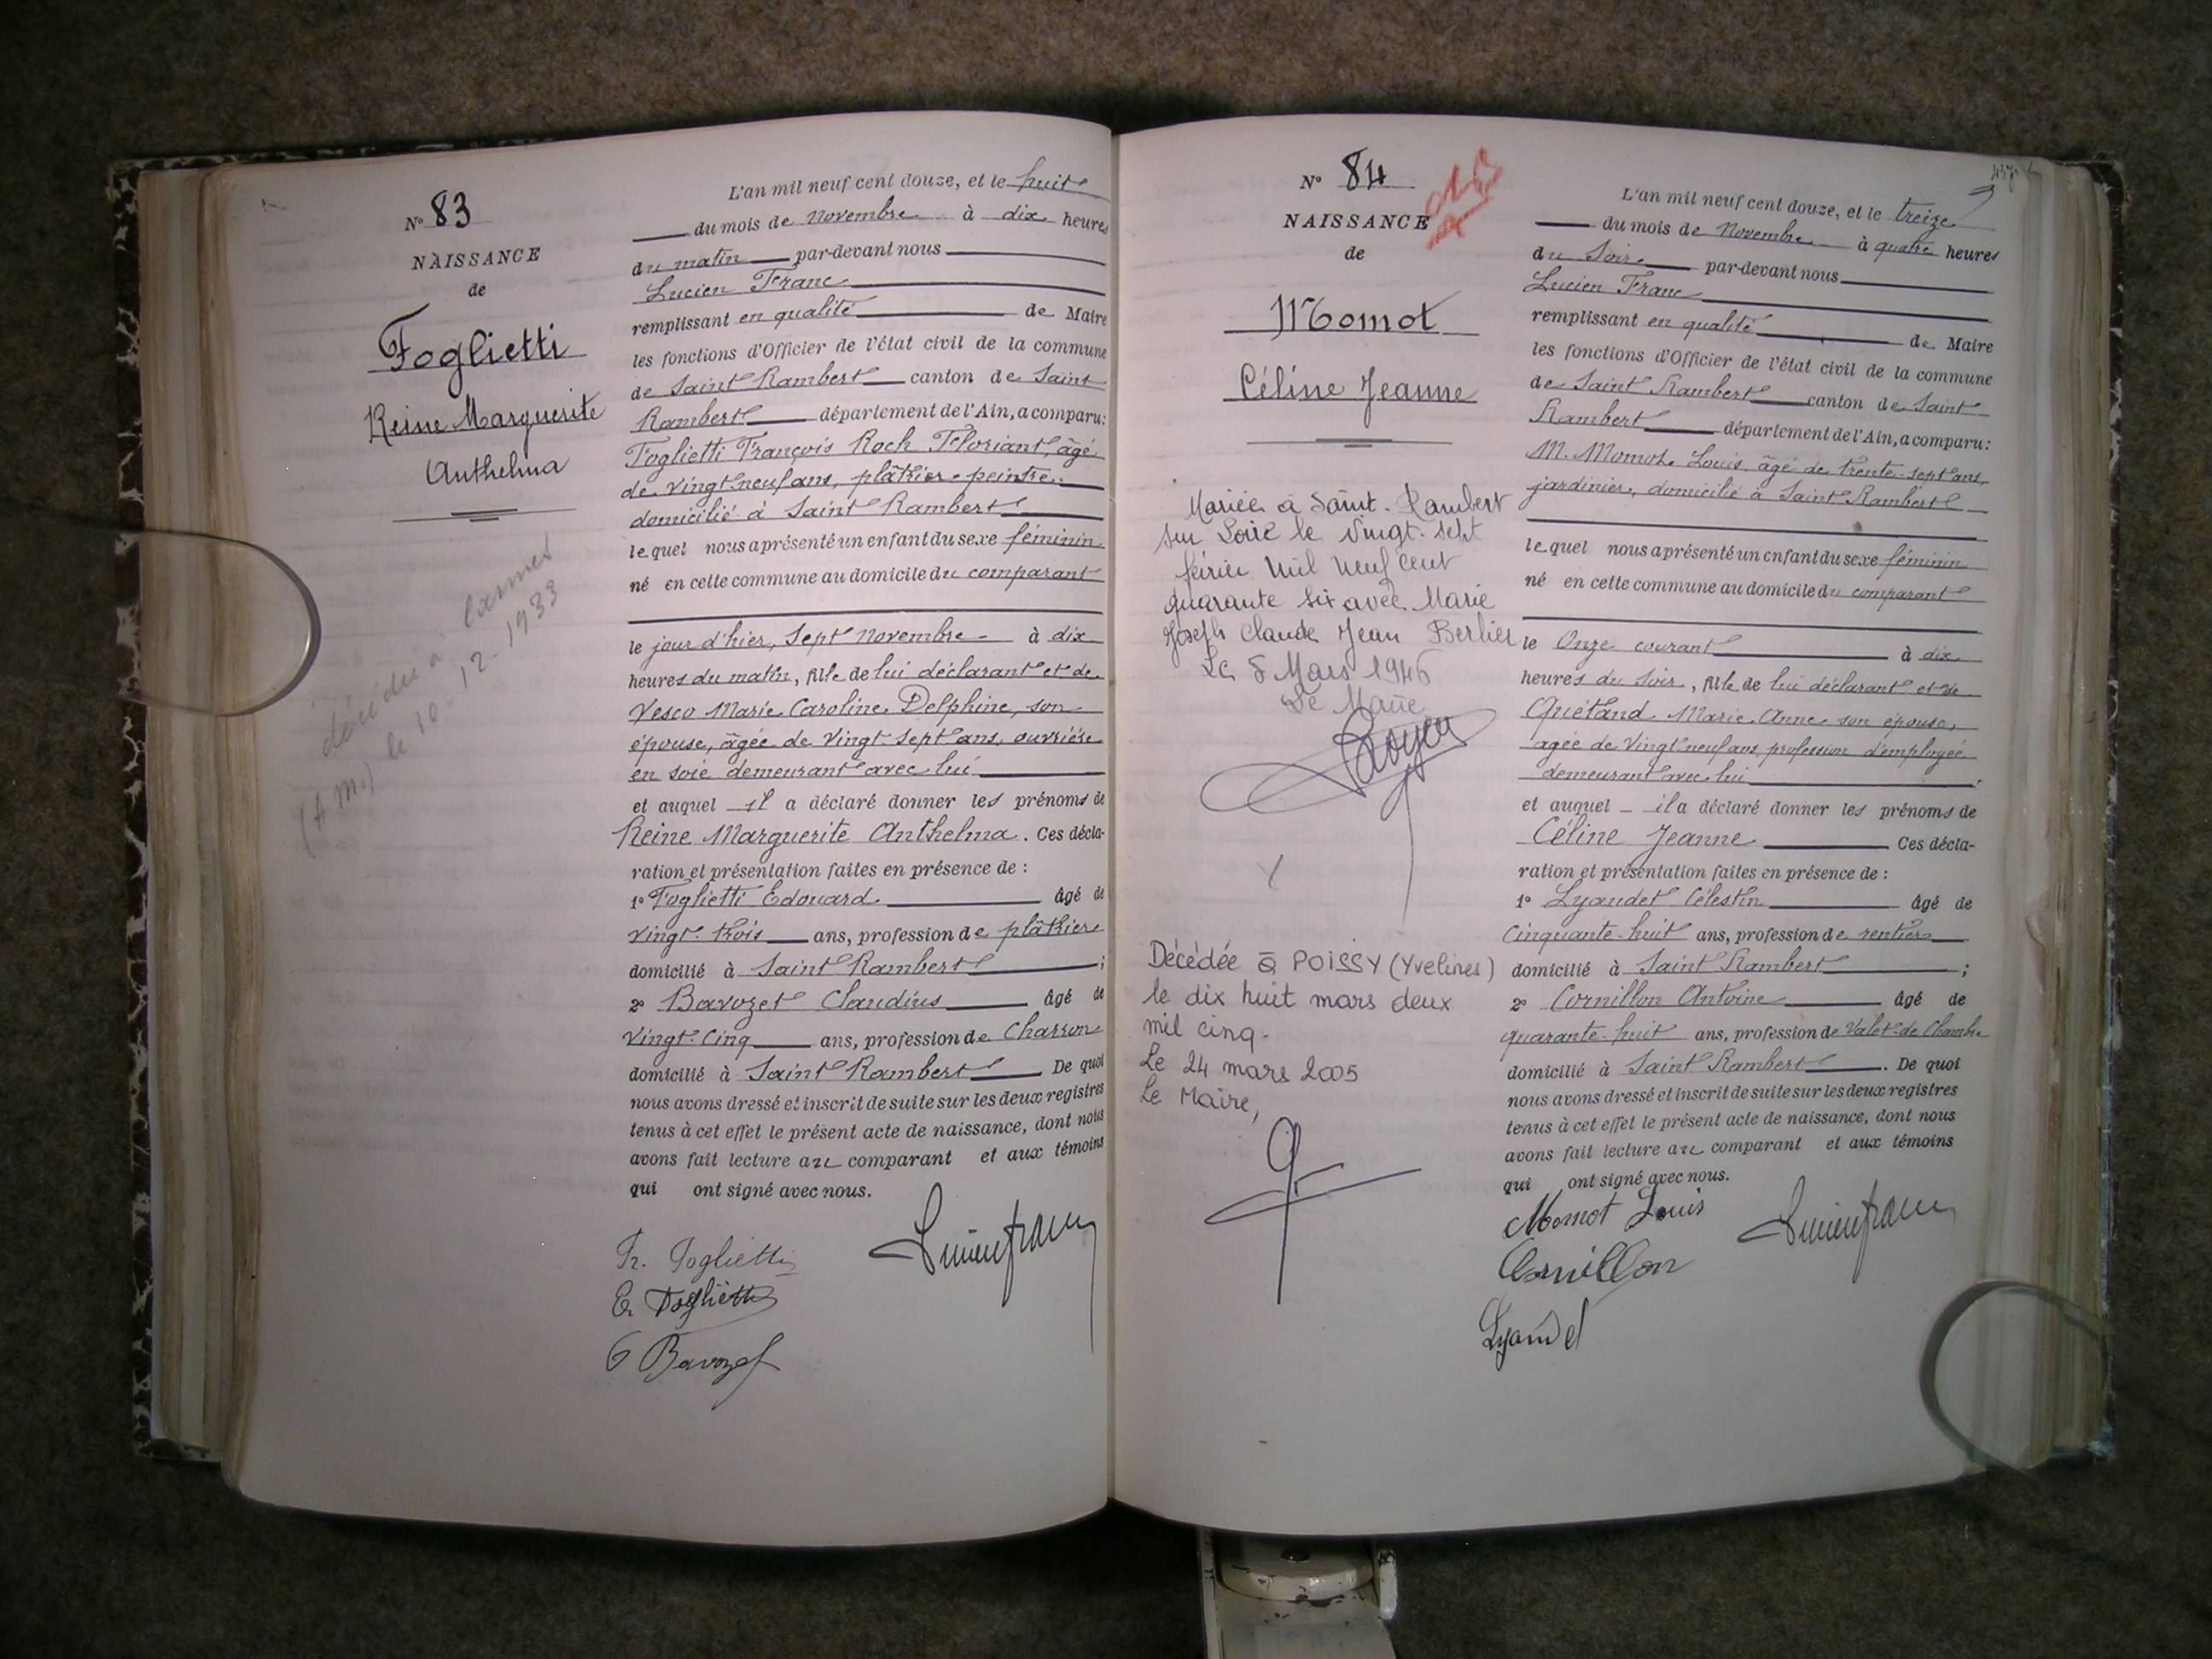 N° 83
NAISSANCE
de
Foglietti
Reine Marguerite
Anthelma
décédée à Cannes
(A M.) le 10-12-1933
L'an mil neuf cent douze, et le huit
du mois de Novembre à dix heures
du matin par-devant nous
Lucien Franc
remplissant en qualité de Maire
les fonctions d'Officier de l'état civil de la commune
de Saint Rambert canton de Saint
Rambert département de l'Ain, a comparu:
Foglietti François Roch Floriant, âgé
de vingt-neuf ans, plâtrier-peintre
domicilié à Saint Rambert
lequel nous a présenté un enfant du sexe féminin
né en cette commune au domicile du comparant
le jour d'hier, Sept Novembre à dix
heures du matin, fille de lui déclarant et de
Vesco Marie Caroline Delphine, son
épouse, âgée de Vingt-Sept ans, ouvrière
en soie demeurant avec lui
et auquel il a déclaré donner les prénoms de
Reine Marguerite Anthelma. Ces décla-
ration et présentation faites en présence de :
1° Foglietti Edouard âgé de
vingt-trois ans, profession de plâtrier
domicilié à Saint Rambert ;
2° Bavozet Claudius âgé de
Vingt-Cinq ans, profession de Charron
domicilié à Saint Rambert. De quoi
nous avons dressé et inscrit de suite sur les deux registres
tenus à cet effet le présent acte de naissance, dont nous
avons fait lecture au comparant et aux témoins
qui ont signé avec nous.
Fr. Foglietti
Lucien franc
E. Foglietti
C Bavozet
N° 84
NAISSANCE
de
Momot
Céline Jeanne
Mariée à Saint-Rambert
sur Loire le vingt-sept
février mil neuf cent
quarante six avec Marie
Joseph Claude Jean Berlier
Le 8 Mars 1946
Le Maire
Décédée à POISSY (Yvelines)
le dix huit mars deux
mil cinq.
Le 24 mars 2005
Le Maire,
L'an mil neuf cent douze, et le treize
du mois de Novembre à quatre heures
du Soir par-devant nous
Lucien Franc
remplissant en qualité de Maire
les fonctions d'Officier de l'état civil de la commune
de Saint Rambert canton de Saint
Rambert département de l'Ain, a comparu:
M. Momot Louis, âgé de trente-sept ans,
jardinier, domicilié à Saint Rambert
lequel nous a présenté un enfant du sexe féminin
né en cette commune au domicile du comparant
le Onze courant à dix
heures du soir, fille de lui déclarant et de
Quétand Marie Anne son épouse,
agée de Vingt neuf ans profession d'employée
demeurant avec lui ;
et auquel il a déclaré donner les prénoms de
Céline Jeanne Ces décla-
ration et présentation faites en présence de :
1° Lyaudet Célestin âgé de
Cinquante-huit ans, profession de rentier
domicilié à Saint Rambert ;
2° Cornillon Antoine âgé de
quarante-huit ans, profession de Valet-de Chambre
domicilié à Saint Rambert. De quoi
nous avons dressé et inscrit de suite sur les deux registres
tenus à cet effet le présent acte de naissance, dont nous
avons fait lecture au comparant et aux témoins
qui ont signé avec nous.
Momot Louis
Lucien franc
Cornillon
Lyaudet